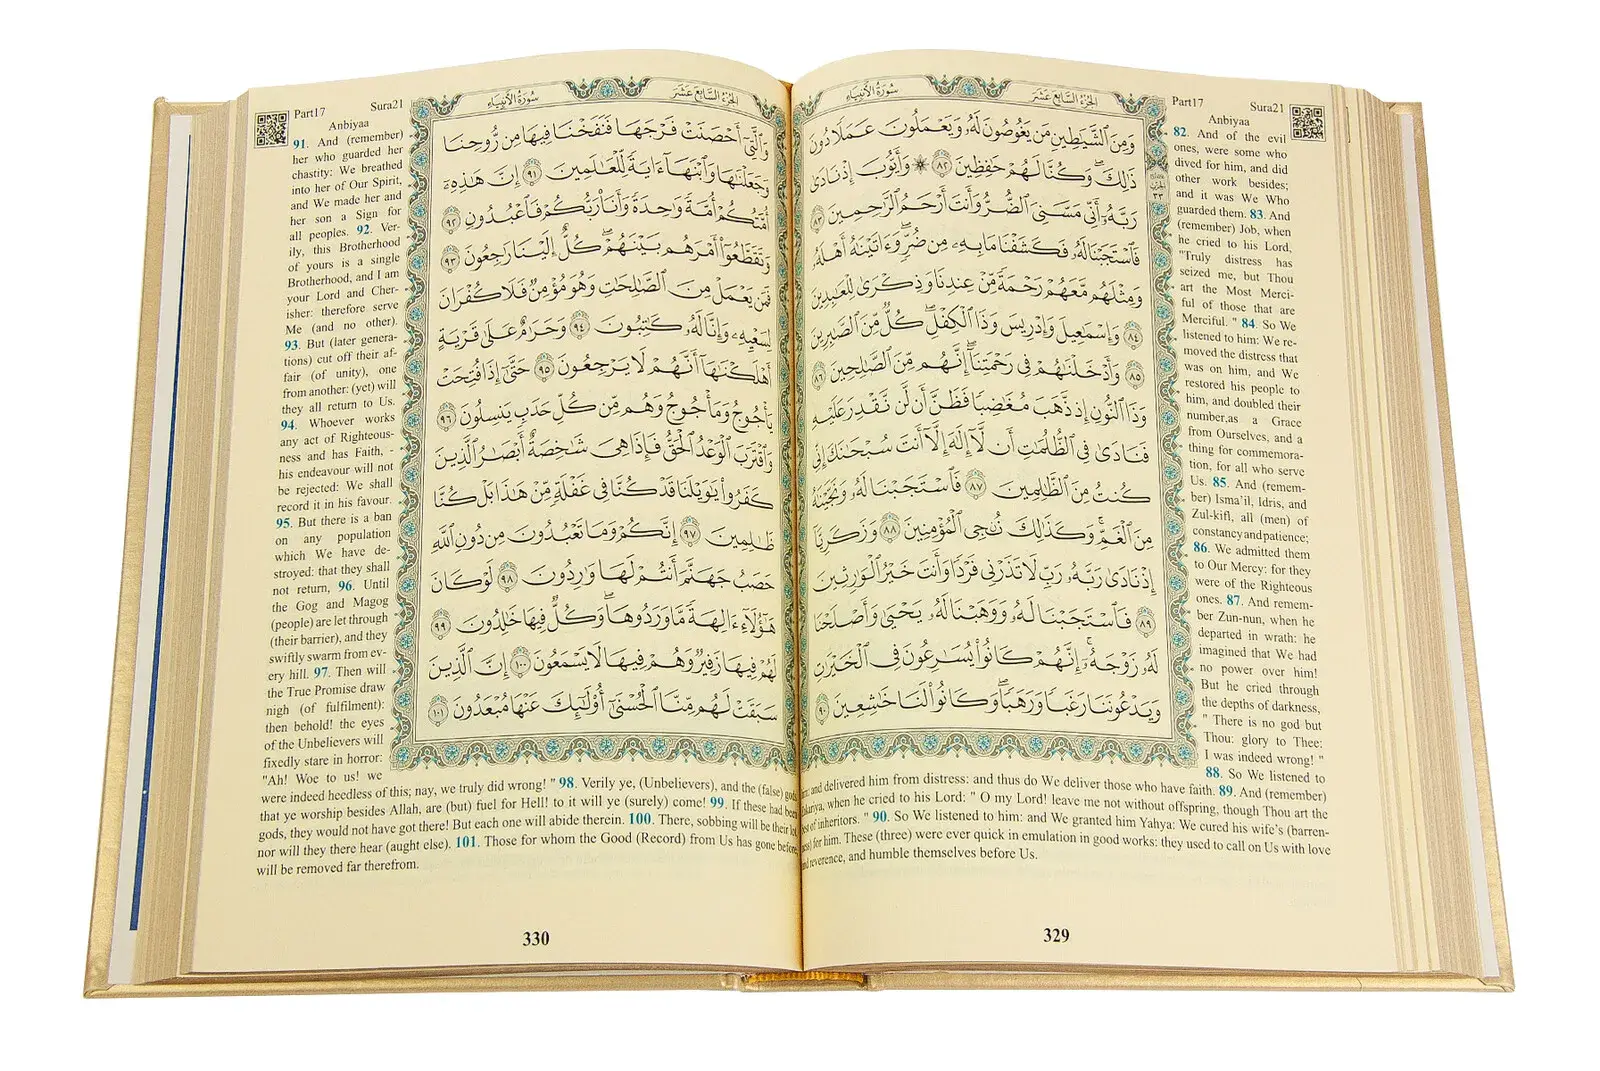 Part17 Sura21
Anbiyaa
سُورَةُ الأَنبِيَاء
الجُزْءُ السَّابِعَ عَشَرَ
وَمِنَ ٱلشَّيَٰطِينِ مَن يَغُوصُونَ لَهُۥ وَيَعْمَلُونَ عَمَلًا دُونَ
ذَٰلِكَ ۖ وَكُنَّا لَهُمْ حَٰفِظِينَ ٨٢ ۞ وَأَيُّوبَ إِذْ نَادَىٰ
رَبَّهُۥٓ أَنِّى مَسَّنِىَ ٱلضُّرُّ وَأَنتَ أَرْحَمُ ٱلرَّٰحِمِينَ ٨٣
فَٱسْتَجَبْنَا لَهُۥ فَكَشَفْنَا مَا بِهِۦ مِن ضُرٍّ ۖ وَءَاتَيْنَٰهُ أَهْلَهُۥ
وَمِثْلَهُم مَّعَهُمْ رَحْمَةً مِّنْ عِندِنَا وَذِكْرَىٰ لِلْعَٰبِدِينَ
٨٤ وَإِسْمَٰعِيلَ وَإِدْرِيسَ وَذَا ٱلْكِفْلِ ۖ كُلٌّ مِّنَ ٱلصَّٰبِرِينَ
٨٥ وَأَدْخَلْنَٰهُمْ فِى رَحْمَتِنَآ ۖ إِنَّهُم مِّنَ ٱلصَّٰلِحِينَ ٨٦
وَذَا ٱلنُّونِ إِذ ذَّهَبَ مُغَٰضِبًا فَظَنَّ أَن لَّن نَّقْدِرَ عَلَيْهِ
فَنَادَىٰ فِى ٱلظُّلُمَٰتِ أَن لَّآ إِلَٰهَ إِلَّآ أَنتَ سُبْحَٰنَكَ إِنِّى
كُنتُ مِنَ ٱلظَّٰلِمِينَ ٨٧ فَٱسْتَجَبْنَا لَهُۥ وَنَجَّيْنَٰهُ
مِنَ ٱلْغَمِّ ۚ وَكَذَٰلِكَ نُۨجِى ٱلْمُؤْمِنِينَ ٨٨ وَزَكَرِيَّآ
إِذْ نَادَىٰ رَبَّهُۥ رَبِّ لَا تَذَرْنِى فَرْدًا وَأَنتَ خَيْرُ ٱلْوَٰرِثِينَ
٨٩ فَٱسْتَجَبْنَا لَهُۥ وَوَهَبْنَا لَهُۥ يَحْيَىٰ وَأَصْلَحْنَا
لَهُۥ زَوْجَهُۥٓ ۚ إِنَّهُمْ كَانُوا۟ يُسَٰرِعُونَ فِى ٱلْخَيْرَٰتِ
وَيَدْعُونَنَا رَغَبًا وَرَهَبًا ۖ وَكَانُوا۟ لَنَا خَٰشِعِينَ ٩٠
82. And of the evil
ones, were some who
dived for him, and did
other work besides;
and it was We Who
guarded them. 83. And
(remember) Job, when
he cried to his Lord,
"Truly distress has
seized me, but Thou
art the Most Merci-
ful of those that are
Merciful. " 84. So We
listened to him: We re-
moved the distress that
was on him, and We
restored his people to
him, and doubled their
number,as a Grace
from Ourselves, and a
thing for commemora-
tion, for all who serve
Us. 85. And (remem-
ber) Isma'il, Idris, and
Zul-kifl, all (men) of
constancy and patience;
86. We admitted them
to Our Mercy: for they
were of the Righteous
ones. 87. And remem-
ber Zun-nun, when he
departed in wrath: he
imagined that We had
no power over him!
But he cried through
the depths of darkness,
" There is no god but
Thou: glory to Thee:
I was indeed wrong! "
88. So We listened to
and delivered him from distress: and thus do We deliver those who have faith. 89. And (remember)
when he cried to his Lord: " O my Lord! leave me not without offspring, though Thou art the
of inheritors. " 90. So We listened to him: and We granted him Yahya: We cured his wife's (barren-
for him. These (three) were ever quick in emulation in good works: they used to call on Us with love
reverence, and humble themselves before Us.
329
Part17 Sura21
Anbiyaa
سُورَةُ الأَنبِيَاء
الجُزْءُ السَّابِعَ عَشَرَ
وَٱلَّتِىٓ أَحْصَنَتْ فَرْجَهَا فَنَفَخْنَا فِيهَا مِن رُّوحِنَا
وَجَعَلْنَٰهَا وَٱبْنَهَآ ءَايَةً لِّلْعَٰلَمِينَ ٩١ إِنَّ هَٰذِهِۦٓ
أُمَّتُكُمْ أُمَّةً وَٰحِدَةً وَأَنَا۠ رَبُّكُمْ فَٱعْبُدُونِ ٩٢
وَتَقَطَّعُوٓا۟ أَمْرَهُم بَيْنَهُمْ ۖ كُلٌّ إِلَيْنَا رَٰجِعُونَ ٩٣
فَمَن يَعْمَلْ مِنَ ٱلصَّٰلِحَٰتِ وَهُوَ مُؤْمِنٌ فَلَا كُفْرَانَ
لِسَعْيِهِۦ وَإِنَّا لَهُۥ كَٰتِبُونَ ٩٤ وَحَرَٰمٌ عَلَىٰ قَرْيَةٍ
أَهْلَكْنَٰهَآ أَنَّهُمْ لَا يَرْجِعُونَ ٩٥ حَتَّىٰٓ إِذَا فُتِحَتْ
يَأْجُوجُ وَمَأْجُوجُ وَهُم مِّن كُلِّ حَدَبٍ يَنسِلُونَ ٩٦
وَٱقْتَرَبَ ٱلْوَعْدُ ٱلْحَقُّ فَإِذَا هِىَ شَٰخِصَةٌ أَبْصَٰرُ ٱلَّذِينَ
كَفَرُوا۟ يَٰوَيْلَنَا قَدْ كُنَّا فِى غَفْلَةٍ مِّنْ هَٰذَا بَلْ كُنَّا
ظَٰلِمِينَ ٩٧ إِنَّكُمْ وَمَا تَعْبُدُونَ مِن دُونِ ٱللَّهِ
حَصَبُ جَهَنَّمَ أَنتُمْ لَهَا وَٰرِدُونَ ٩٨ لَوْ كَانَ
هَٰٓؤُلَآءِ ءَالِهَةً مَّا وَرَدُوهَا ۖ وَكُلٌّ فِيهَا خَٰلِدُونَ ٩٩
لَهُمْ فِيهَا زَفِيرٌ وَهُمْ فِيهَا لَا يَسْمَعُونَ ١٠٠ إِنَّ ٱلَّذِينَ
سَبَقَتْ لَهُم مِّنَّا ٱلْحُسْنَىٰٓ أُو۟لَٰٓئِكَ عَنْهَا مُبْعَدُونَ ١٠١
91. And (remember)
her who guarded her
chastity: We breathed
into her of Our Spirit,
and We made her and
her son a Sign for
all peoples. 92. Ver-
ily, this Brotherhood
of yours is a single
Brotherhood, and I am
your Lord and Cher-
isher: therefore serve
Me (and no other).
93. But (later genera-
tions) cut off their af-
fair (of unity), one
from another: (yet) will
they all return to Us.
94. Whoever works
any act of Righteous-
ness and has Faith, -
his endeavour will not
be rejected: We shall
record it in his favour.
95. But there is a ban
on any population
which We have de-
stroyed: that they shall
not return, 96. Until
the Gog and Magog
(people) are let through
(their barrier), and they
swiftly swarm from ev-
ery hill. 97. Then will
the True Promise draw
nigh (of fulfilment):
then behold! the eyes
of the Unbelievers will
fixedly stare in horror:
"Ah! Woe to us! we
were indeed heedless of this; nay, we truly did wrong! " 98. Verily ye, (Unbelievers), and the (false) gods
that ye worship besides Allah, are (but) fuel for Hell! to it will ye (surely) come! 99. If these had been
gods, they would not have got there! But each one will abide therein. 100. There, sobbing will be their lot,
nor will they there hear (aught else). 101. Those for whom the Good (Record) from Us has gone before,
will be removed far therefrom.
330